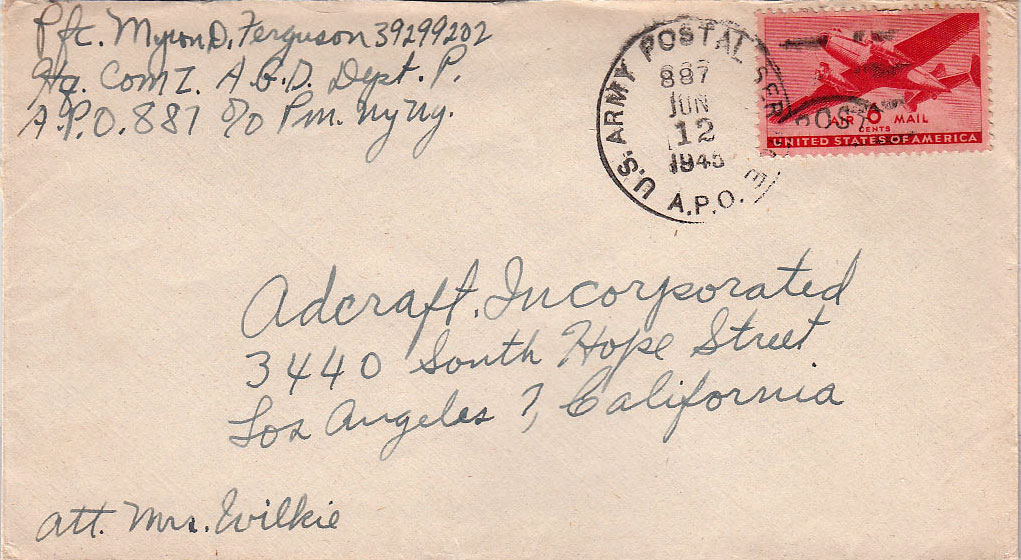 Pfc. Myron D. Ferguson 39299202
Hq. Com Z. A.G.D. Dept. P.
A.P.O. 887 c/o Pm. Ny Ny.
U.S. ARMY POSTAL SERVICE
887
JUN
12
1945
A.P.O.
POST
AIR 6 MAIL
CENTS
UNITED STATES OF AMERICA
Adcraft Incorporated
3440 South Hope Street
Los Angeles 7, California
att. Mrs. Wilkie